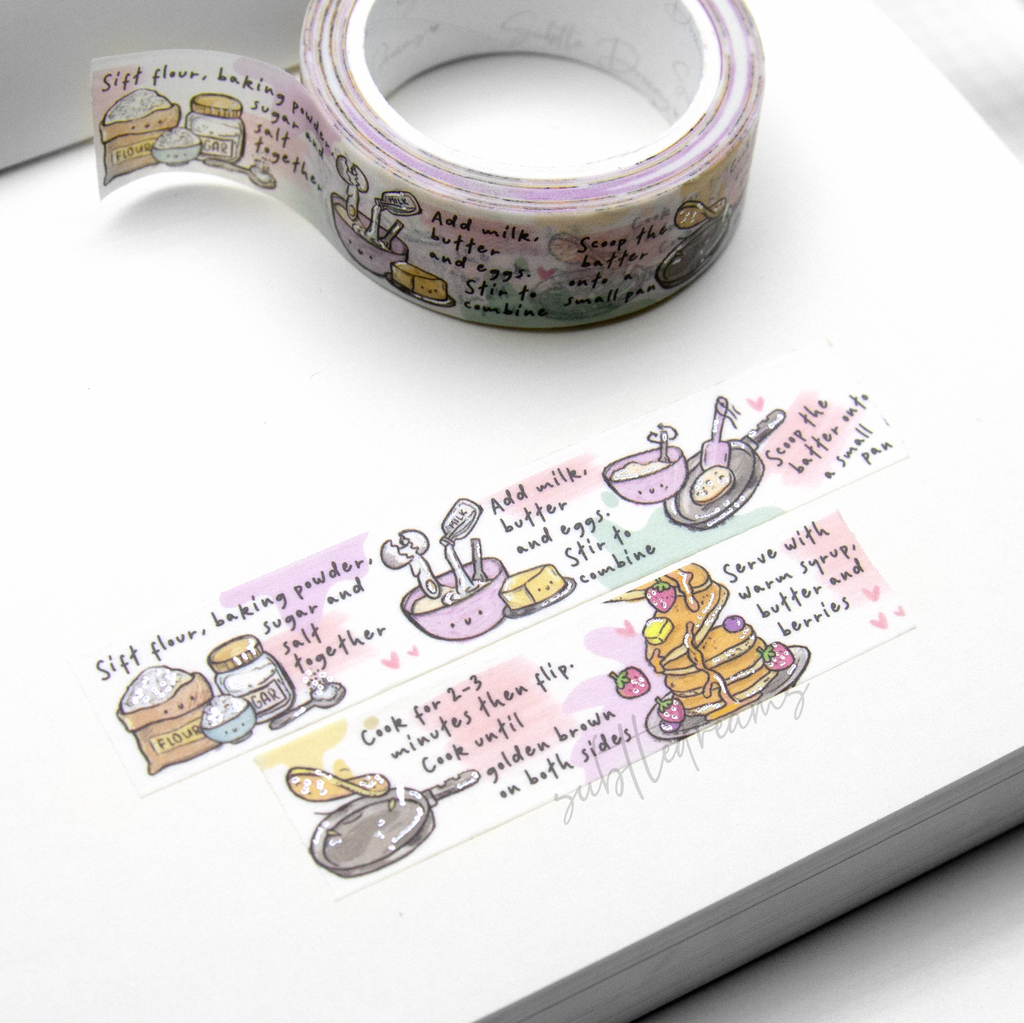 Subtle Dreamz
Sift flour, baking powder,
sugar and
salt
together
FLOUR
GAR
MILK
Add milk,
butter
and eggs.
Stir to
combine
Cook
Scoop the
batter
onto a
small pan
Sift flour, baking powder,
sugar and
salt
together
FLOUR
GAR
MILK
Add milk,
butter
and eggs.
Stir to
combine
Scoop the
batter onto
a small
pan
Cook for 2-3
minutes then flip.
Cook until
golden brown
on both sides
Serve with
warm syrup,
butter and
berries
subtledreamz